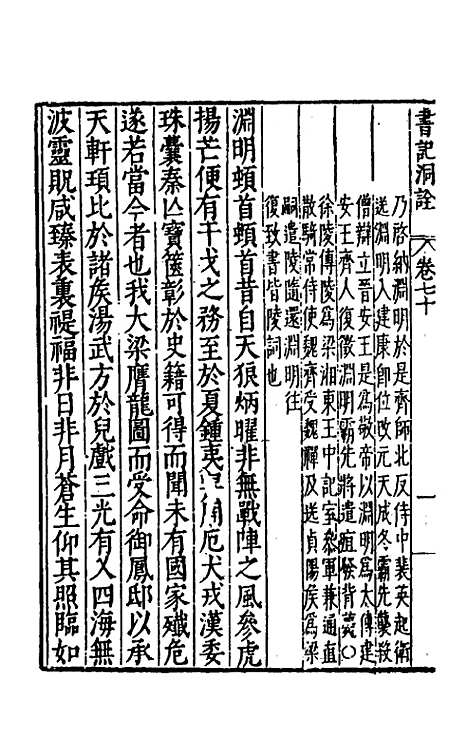 書記洞詮
卷七十
一
乃啓納淵明於是齊師北反侍中裴英起衛
送淵明入建康卽位改元天成冬霸先襲殺
僧辯立晉安王是爲敬帝以淵明爲太傅建
安王齊人復徵淵明霸先將遣疽發背薨〇
徐陵傳陵爲梁湘東王中記室參軍兼通直
散騎常侍使魏齊受魏禪及送貞陽矦爲梁
嗣遣陵隨還淵明往
復致書皆陵詞也
淵明頓首頓首昔自天狼炳曜非無戰陣之風參虎
揚芒便有干戈之務至於夏鍾夷羿周厄犬戎漢委
珠囊秦亾寶篋彰於史籍可得而聞未有國家殲危
遂若當今者也我大梁膺龍圖而受命御鳳邸以承
天軒頊比於諸矦湯武方於兒戲三光有乂四海無
波靈貺咸臻表裏禔福非日非月蒼生仰其照臨如